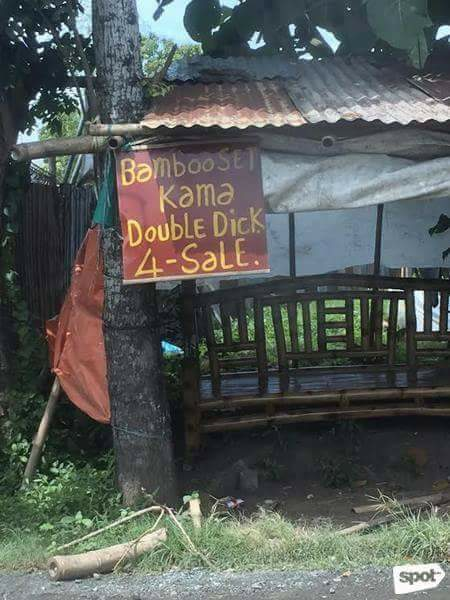 Bamboo SET
Kama
Double Dick
4-Sale.
spot